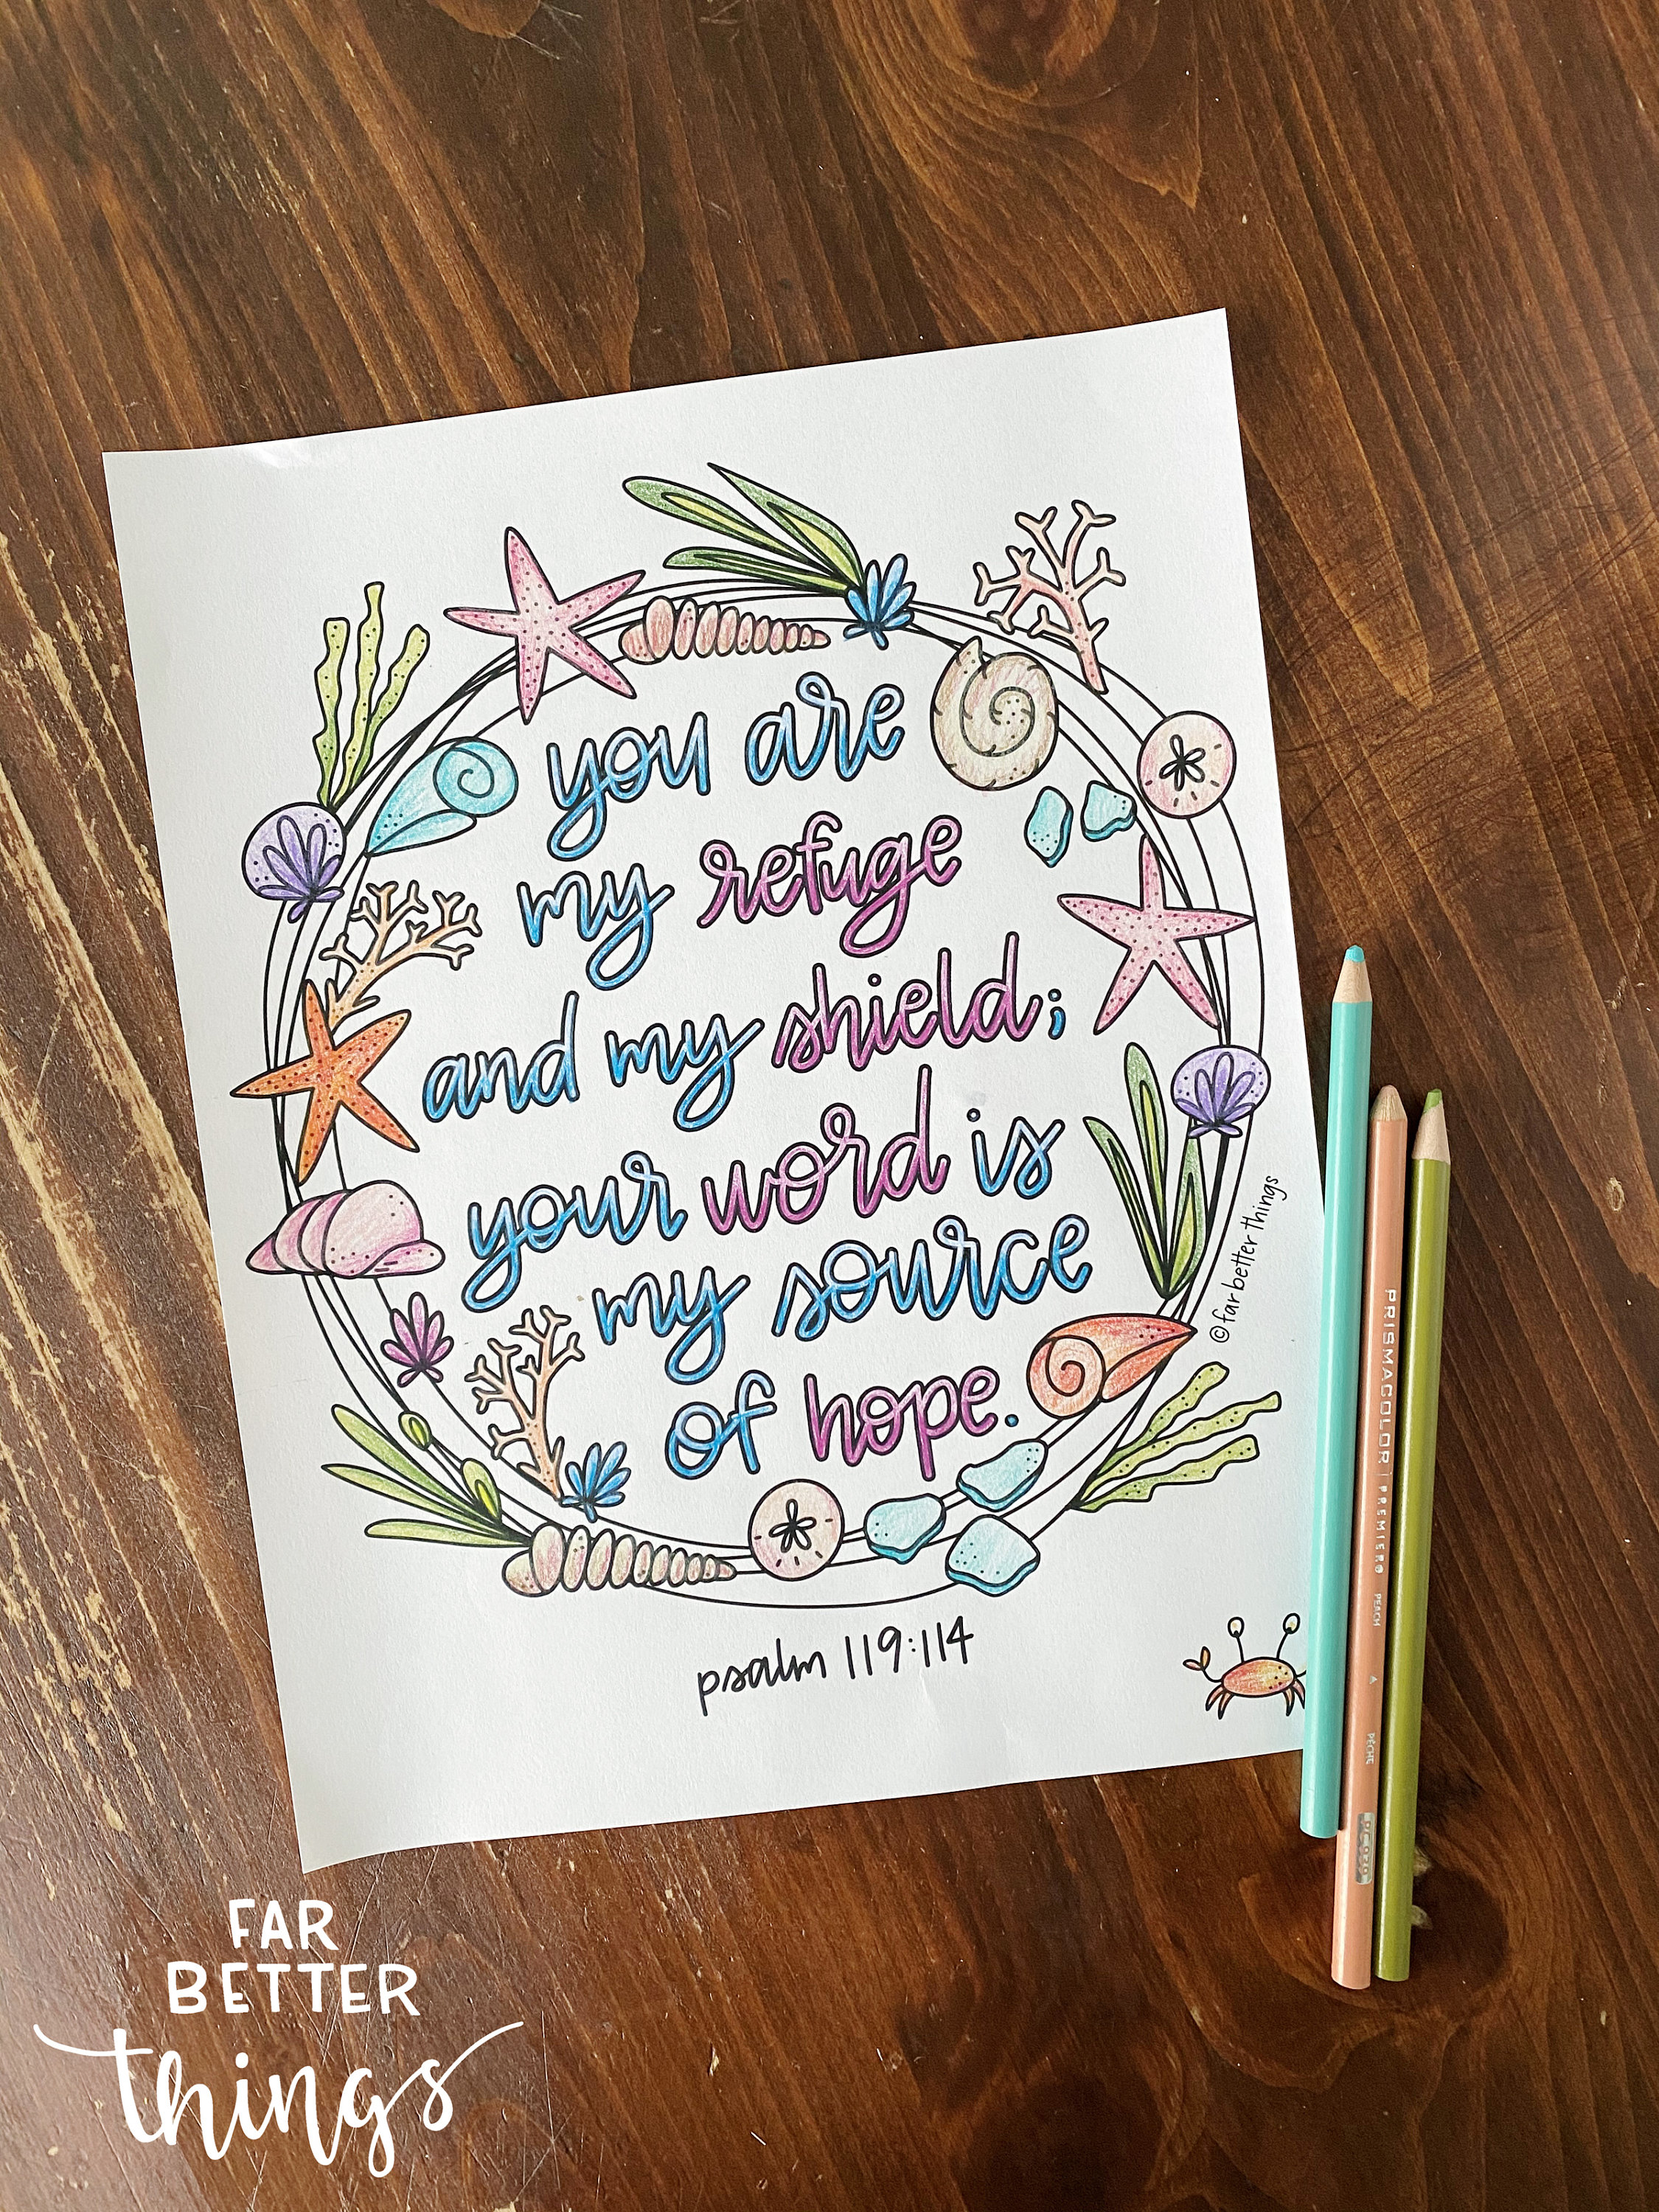 you are
my refuge
and my shield;
your word is
my source
of hope.
©far better things
psalm 119:114
PRISMACOLOR | PREMIER® PEACH
PÊCHE
FAR
BETTER
things